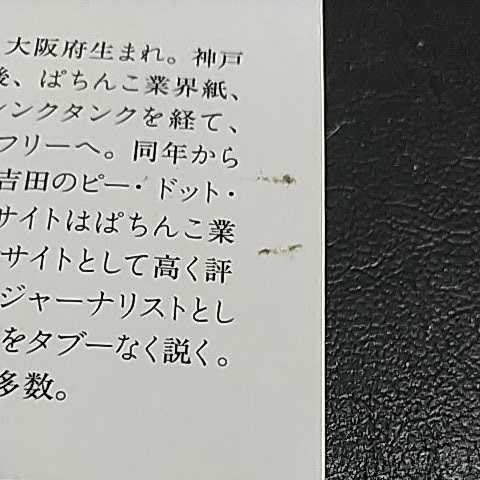 大阪府生まれ。神戸
後、ぱちんこ業界紙、
ンクタンクを経て、
フリーへ。同年から
吉田のピー・ドット・
サイトはぱちんこ業
サイトとして高く評
ジャーナリストとし
をタブーなく説く。
多数。